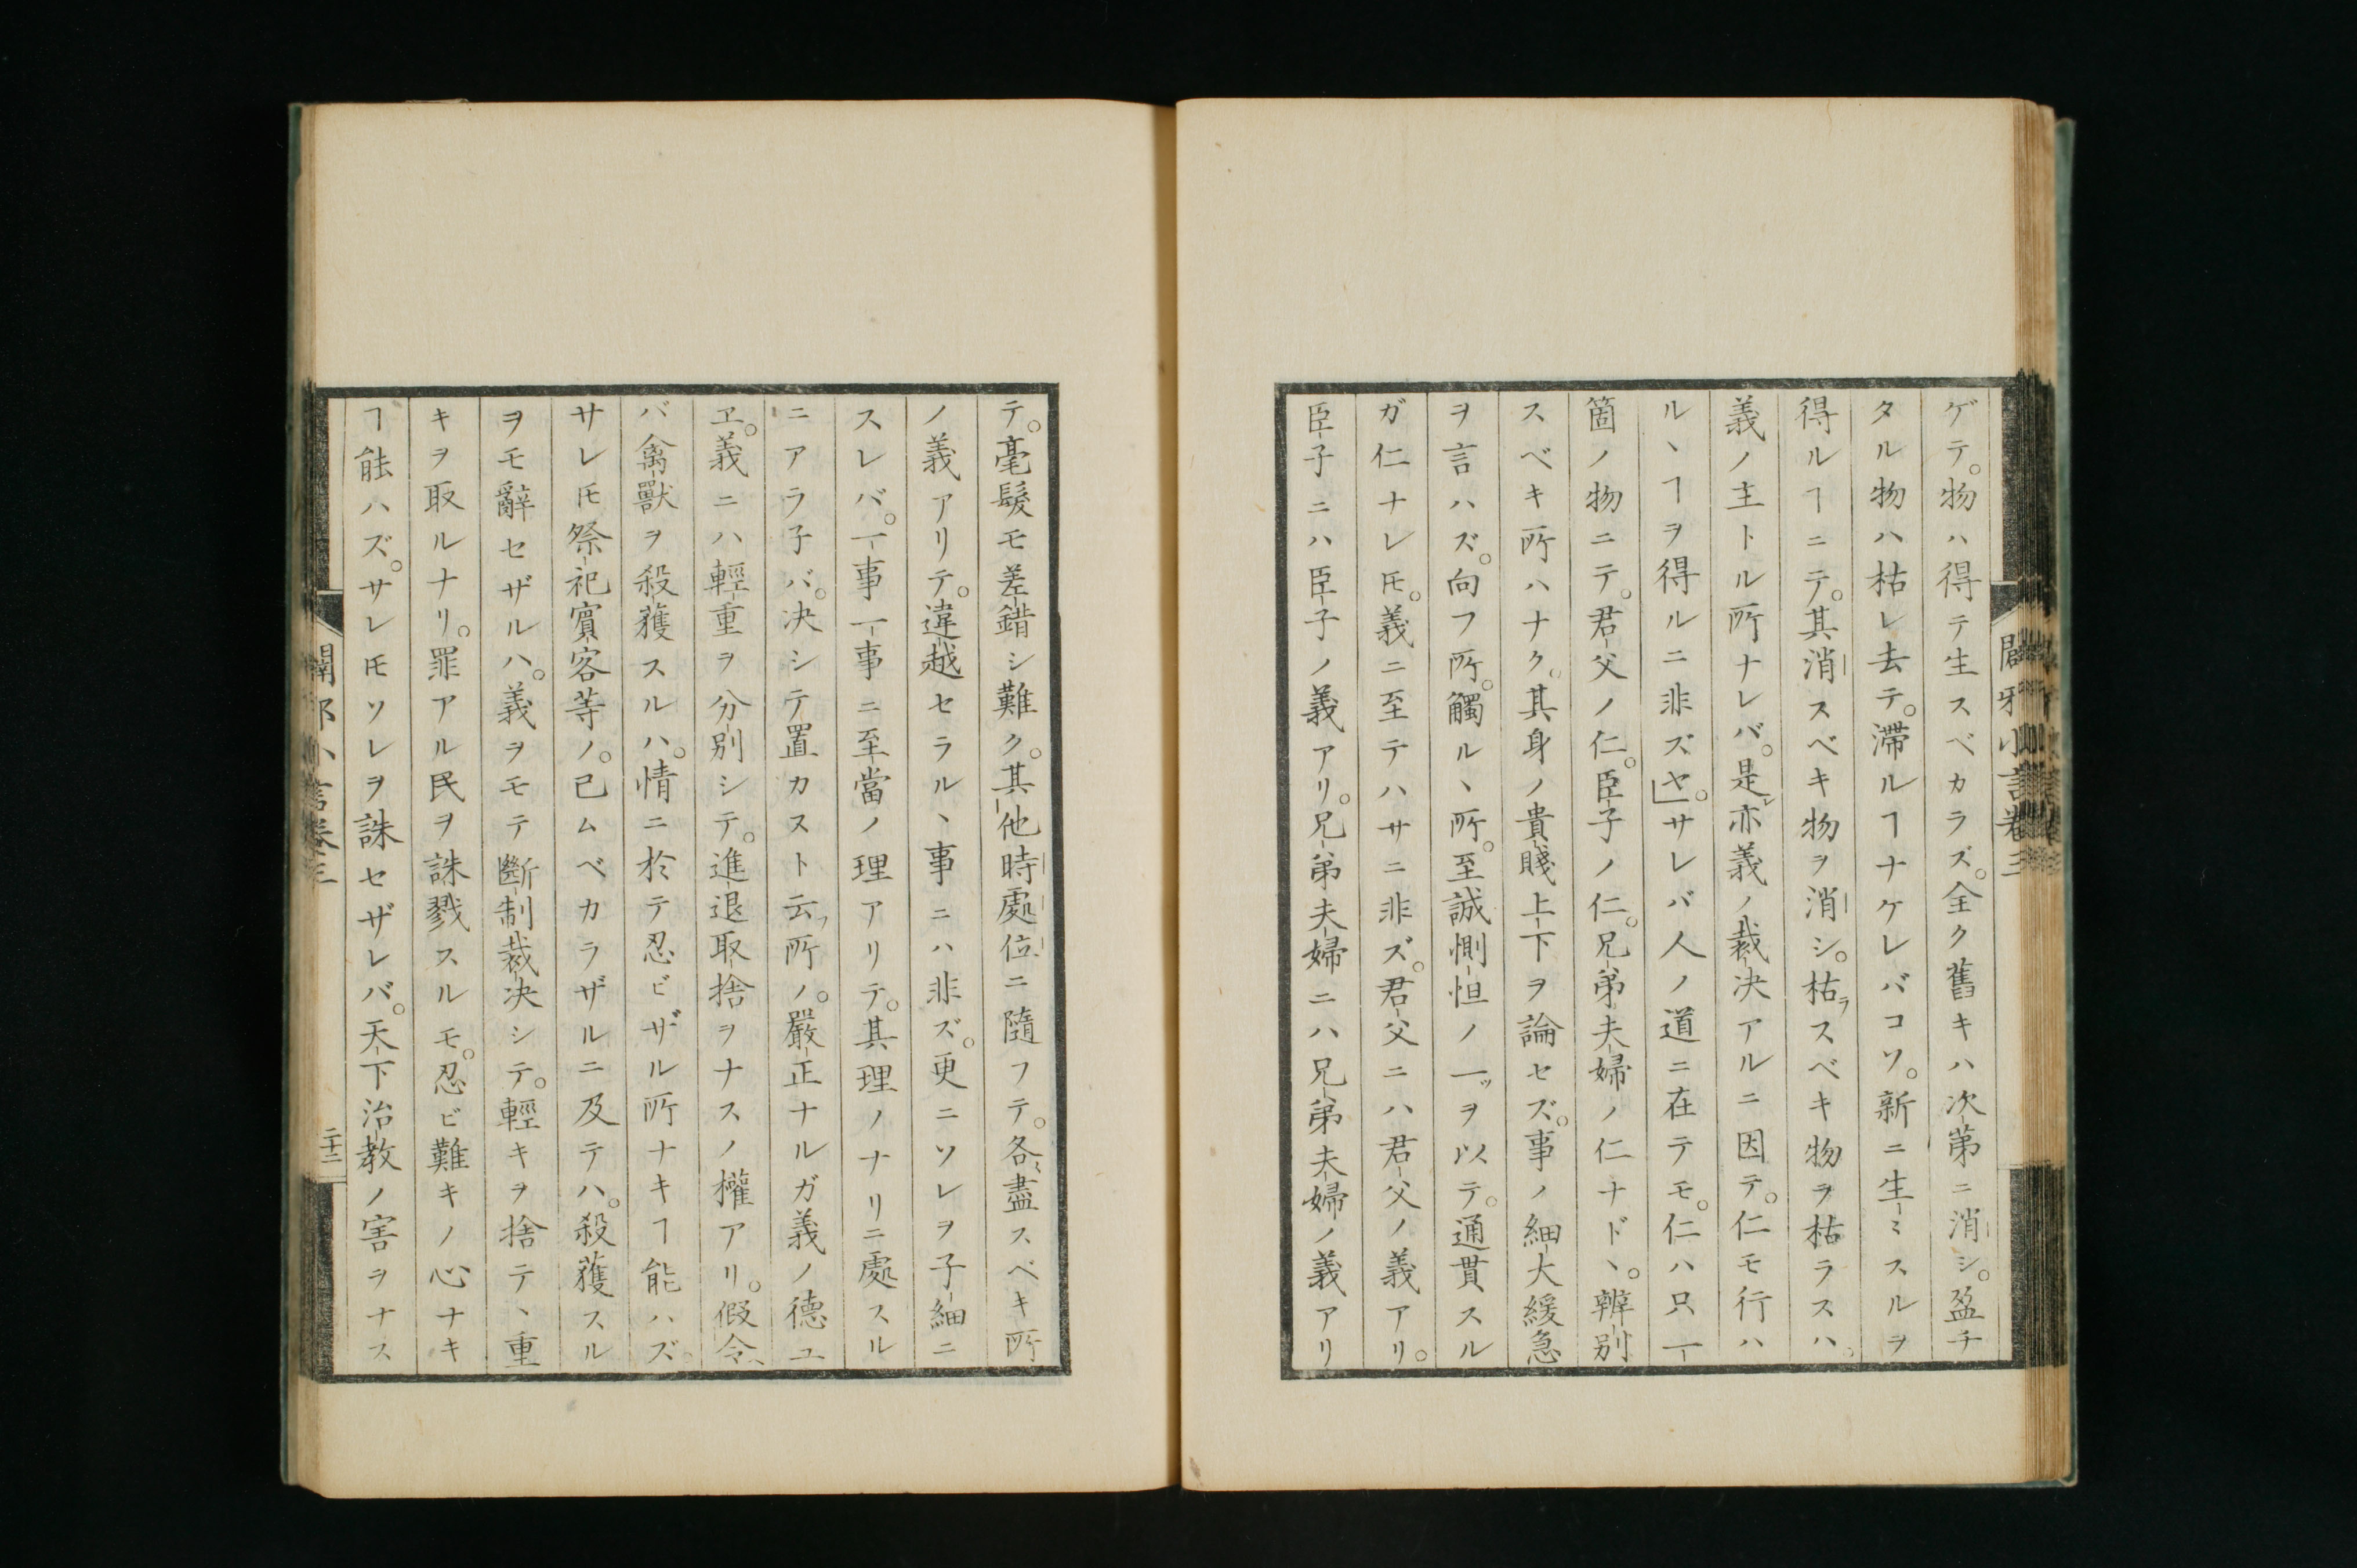 ゲテ。物ハ得テ生スベカラズ。全ク舊キハ次第ニ消シ。盈チ
タル物ハ枯レ去テ。滯ルヿナケレバコソ。新ニ生ミスルヲ
得ルヿニテ。其消スベキ物ヲ消シ。枯ラスベキ物ヲ枯ラスハ。
義ノ主トル所ナレバ。是レ亦義ノ裁決アルニ因テ。仁モ行ハ
ルヽヿヲ得ルニ非ズヤ。」サレバ人ノ道ニ在テモ。仁ハ只一
箇ノ物ニテ。君父ノ仁。臣子ノ仁。兄弟夫婦ノ仁ナドヽ。辨別
スベキ所ハナク。其身ノ貴賤上下ヲ論セズ。事ノ細大緩急
ヲ言ハズ。向フ所。觸ルヽ所。至誠惻怛ノ一ツヲ以テ。通貫スル
ガ仁ナレ𪜈。義ニ至テハサニ非ズ。君父ニハ君父ノ義アリ。
臣子ニハ臣子ノ義アリ。兄弟夫婦ニハ兄弟夫婦ノ義アリ
テ。毫髮モ差錯シ難ク。其他時處位ニ隨フテ。各〻盡スベキ所
ノ義アリテ。違越セラルヽ事ニハ非ズ。更ニソレヲ子細ニ
スレバ。一事一事ニ至當ノ理アリテ。其理ノナリニ處スル
ニアラ子バ。決シテ置カスト云フ所ノ。嚴正ナルガ義ノ德ユ
ヱ。義ニハ輕重ヲ分別シテ。進退取捨ヲナスノ權アリ。假令ヘ
バ禽獸ヲ殺獲スルハ。情ニ於テ忍ビザル所ナキヿ能ハズ。
サレ𪜈祭祀賓客等ノ。已ムベカラザルニ及テハ。殺獲スル
ヲモ辭セザルハ。義ヲモテ斷制裁決シテ。輕キヲ捨テヽ重
キヲ取ルナリ。罪アル民ヲ誅戮スルモ。忍ビ難キノ心ナキ
ヿ能ハズ。サレ𪜈ソレヲ誅セザレバ。天下治教ノ害ヲナス
二十二